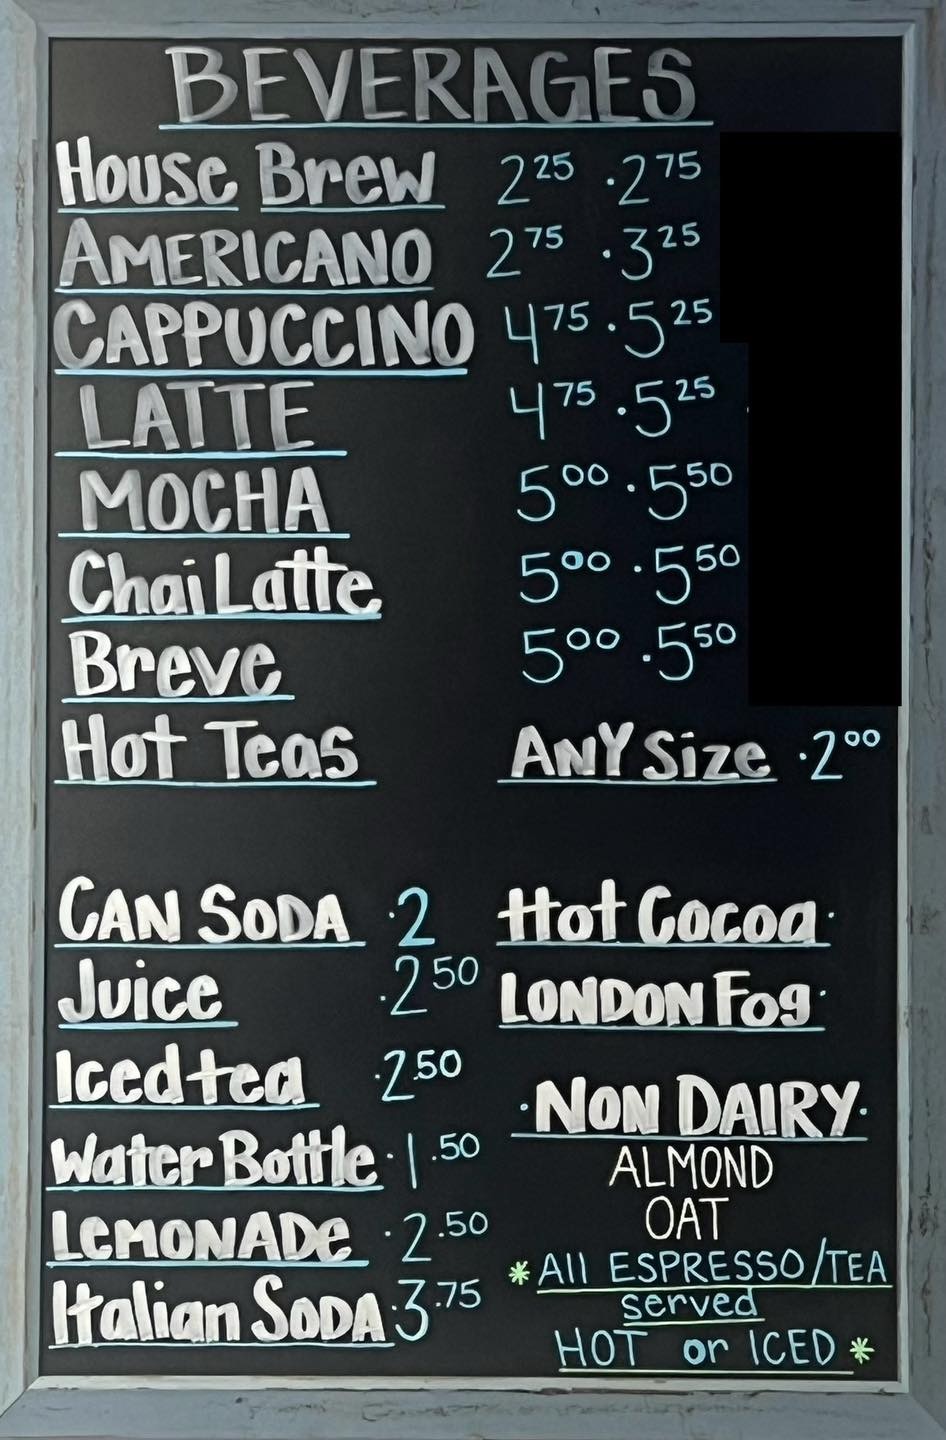 BEVERAGES
House Brew 2.25 · 2.75
AMERICANO 2.75 · 3.25
CAPPUCCINO 4.75 · 5.25
LATTE 4.75 · 5.25
MOCHA 5.00 · 5.50
Chai Latte 5.00 · 5.50
Breve 5.00 · 5.50
Hot Teas ANY Size · 2.00
CAN SODA · 2
Juice · 2.50
Iced tea · 2.50
Water Bottle · 1.50
LEMONADe · 2.50
Italian SODA · 3.75
Hot Cocoa ·
LONDON Fog ·
· NON DAIRY ·
ALMOND
OAT
* All ESPRESSO/TEA
served
HOT or ICED *